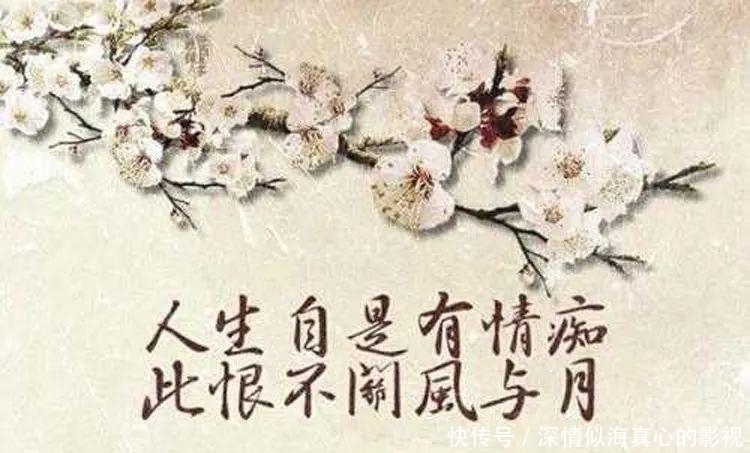 人生自是有情痴
此恨不關風与月
快传号/深情似海真心的影视